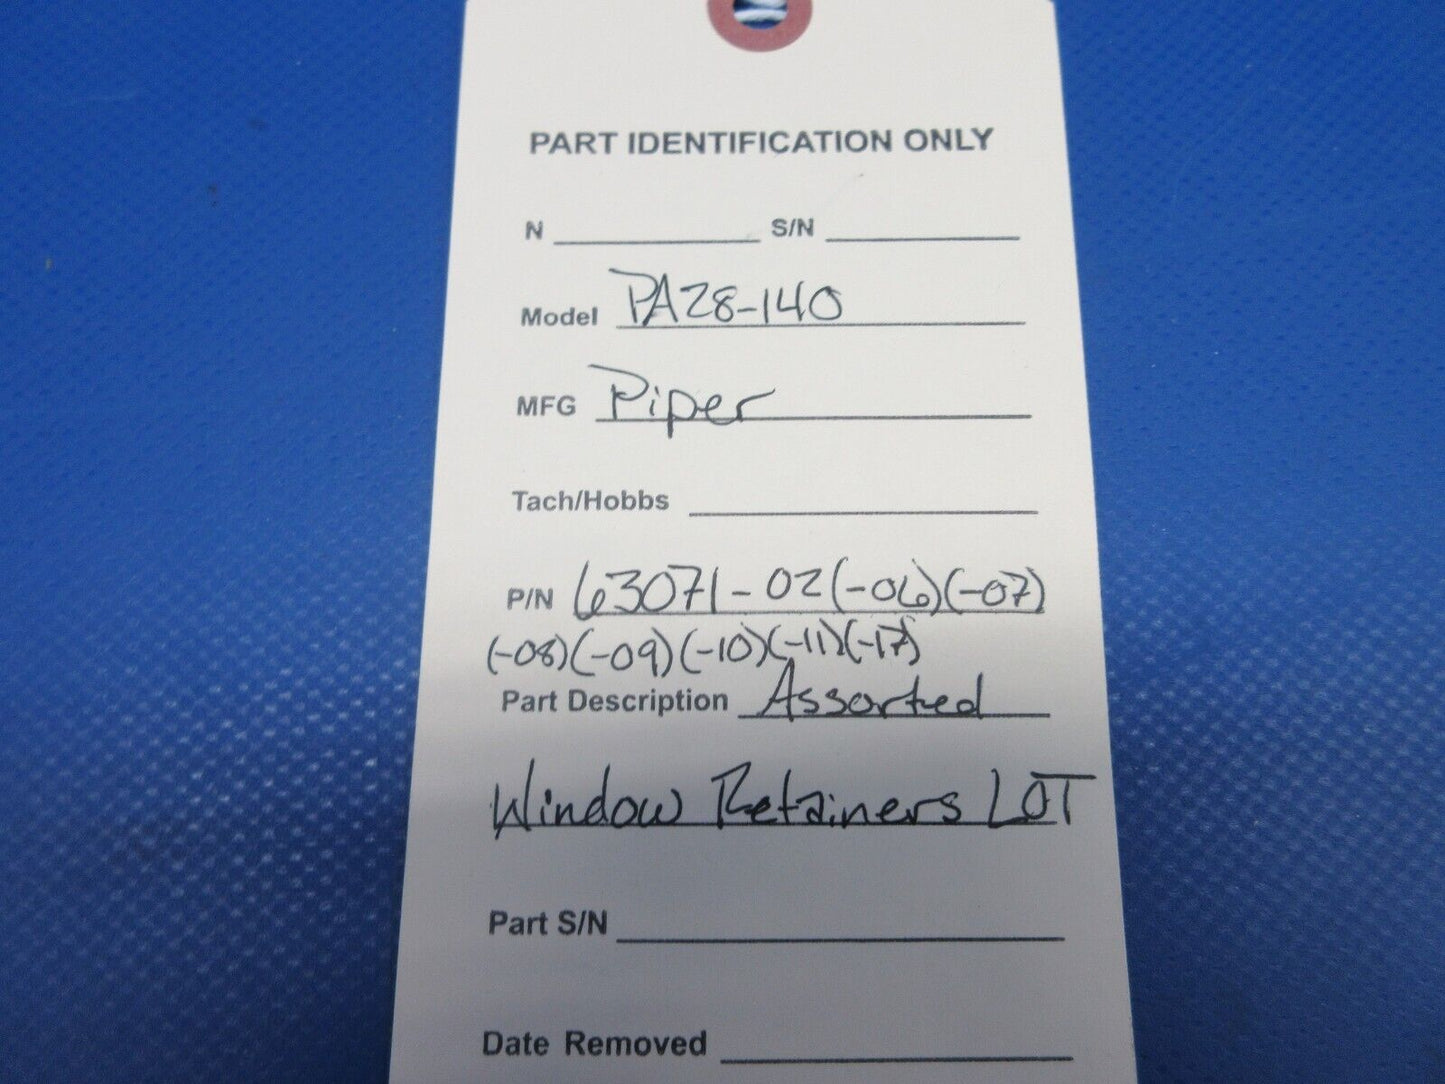 PART IDENTIFICATION ONLY
N S/N
Model PA28-140
MFG Piper
Tach/Hobbs
P/N 63071-02(-06)(-07)
(-08)(-09)(-10)(-11)(-17)
Part Description Assorted
Window Retainers LOT
Part S/N
Date Removed